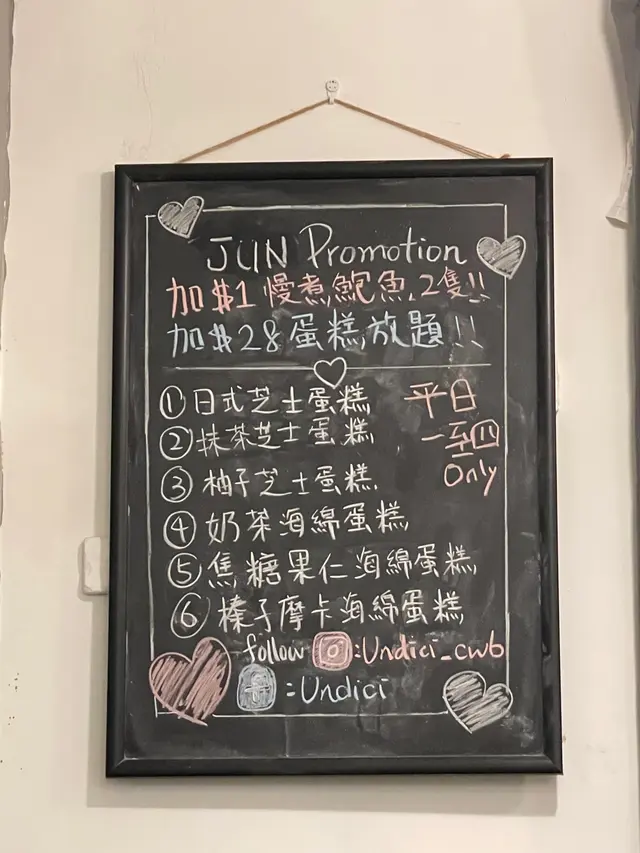 JUN Promotion
加$1慢煮鮑魚2隻!!
加$28蛋糕放題!!
①日式芝士蛋糕
②抹茶芝士蛋糕
③柚子芝士蛋糕
④奶茶海綿蛋糕
⑤焦糖果仁海綿蛋糕
⑥榛子摩卡海綿蛋糕
平日
一至四
Only
follow :Undici_cwb
:Undici